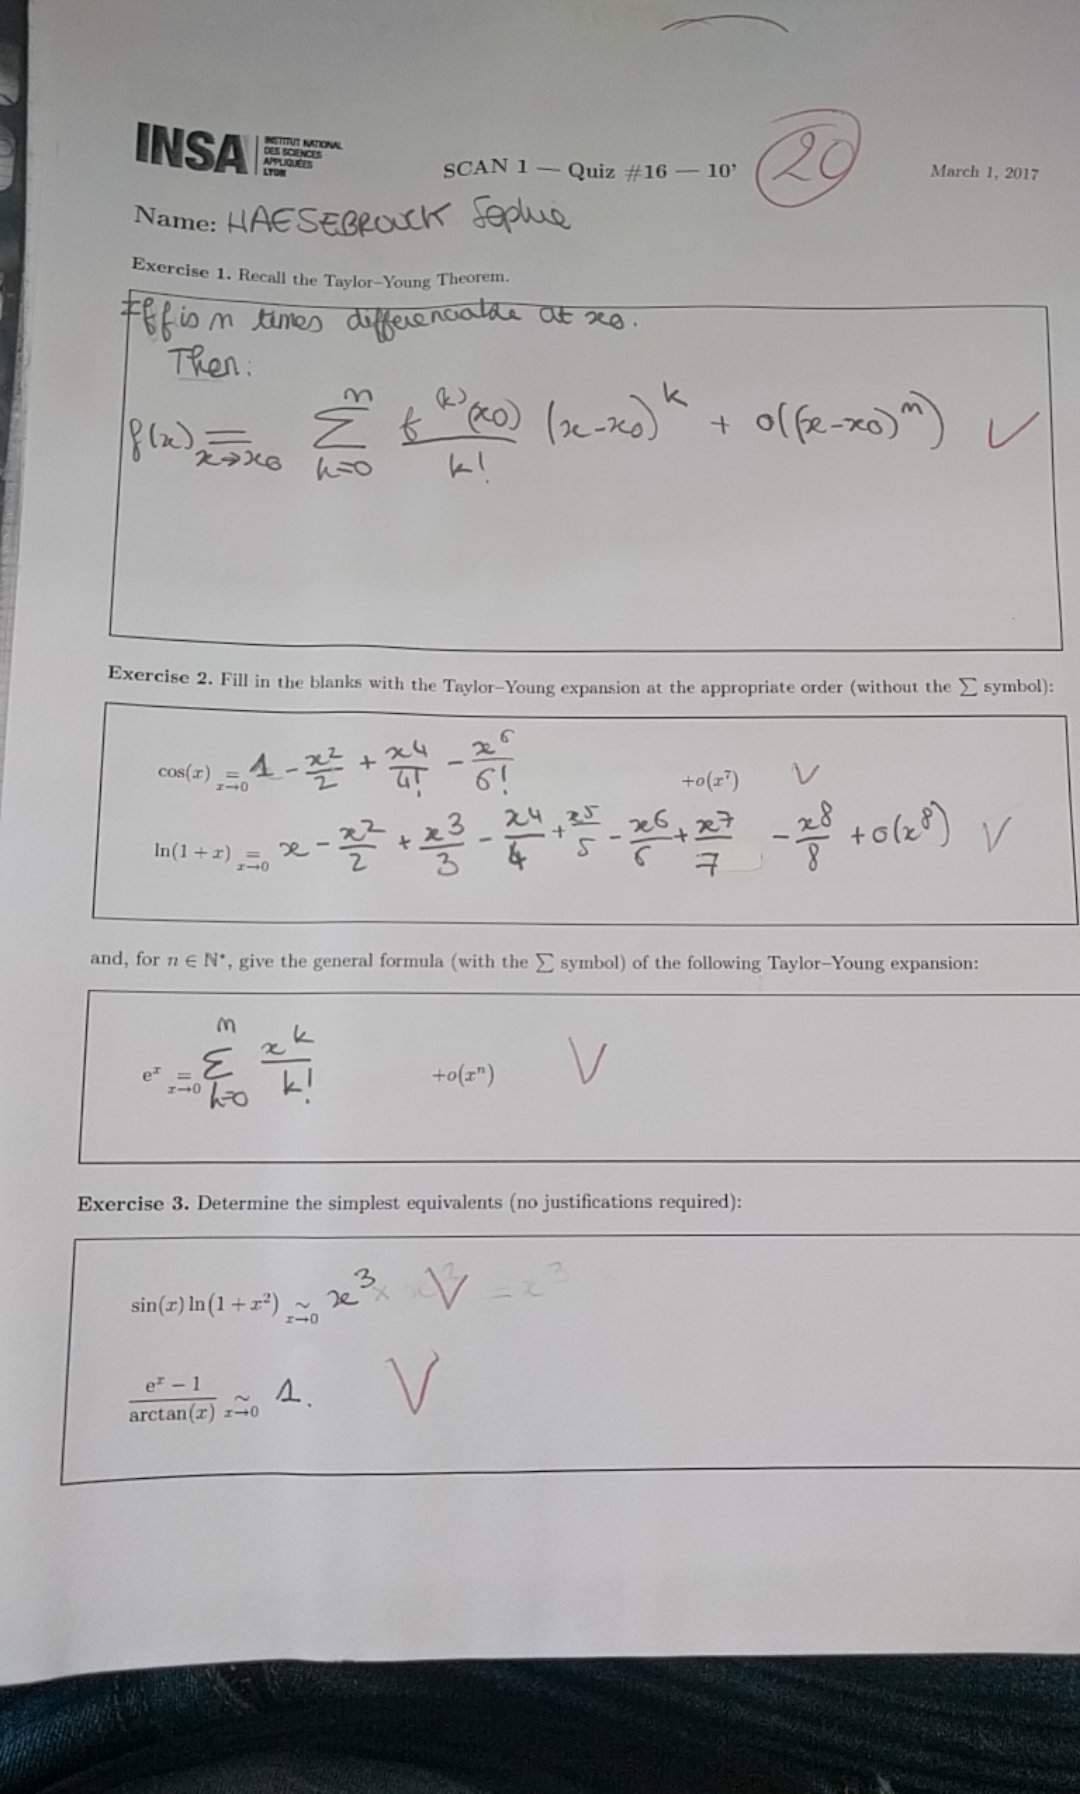 INSA INSTITUT NATIONAL DES SCIENCES APPLIQUÉES LYON
SCAN 1 — Quiz #16 — 10’
20
March 1, 2017
Name: HAESEBROUCK Sophie
Exercise 1. Recall the Taylor–Young Theorem.
If f is n times differenciable at x₀.
Then:
f(x) =_{x→x₀} Σ_{k=0}^{n} f^{(k)}(x₀)/k! (x-x₀)^k + o((x-x₀)^n) ✓
Exercise 2. Fill in the blanks with the Taylor–Young expansion at the appropriate order (without the ∑ symbol):
cos(x) =_{x→0} 1 - x²/2 + x⁴/4! - x⁶/6! +o(x⁷) V
ln(1 + x) =_{x→0} x - x²/2 + x³/3 - x⁴/4 + x⁵/5 - x⁶/6 + x⁷/7 - x⁸/8 + o(x⁸) V
and, for n ∈ ℕ*, give the general formula (with the ∑ symbol) of the following Taylor–Young expansion:
eˣ =_{x→0} Σ_{k=0}^{n} x^k/k! +o(xⁿ) V
Exercise 3. Determine the simplest equivalents (no justifications required):
sin(x) ln(1 + x²) ~_{x→0} x³ V = x³
(eˣ − 1)/arctan(x) ~_{x→0} 1. V